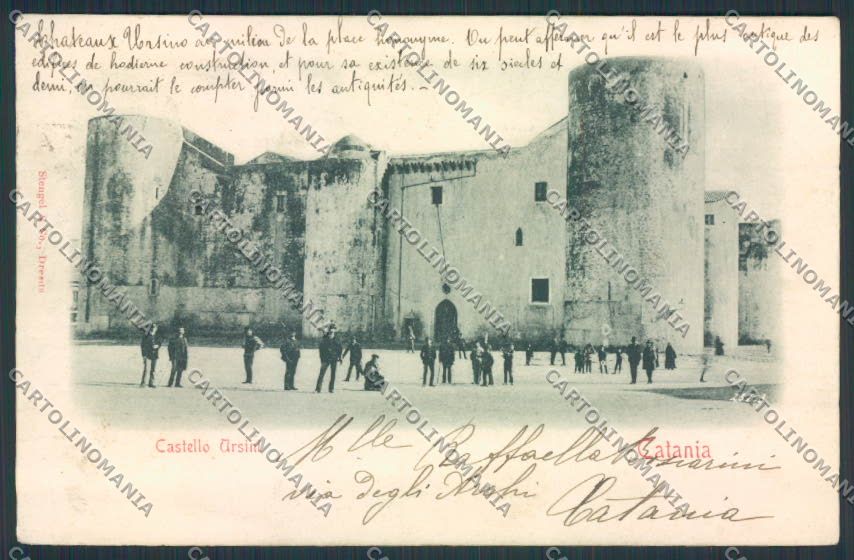 Chateaux Ursino au milieu de la place homonyme. On peut affirmer qu'il est le plus antique des
edifices de hodierne construction, et pour sa existence de six siecles et
demi, on pourrait le compter parmi les antiquités. –
Stengel & Co., Dresda
Castello Ursino
Catania
Mlle Raffaella
via degli Archi
Catania
CARTOLINOMANIA